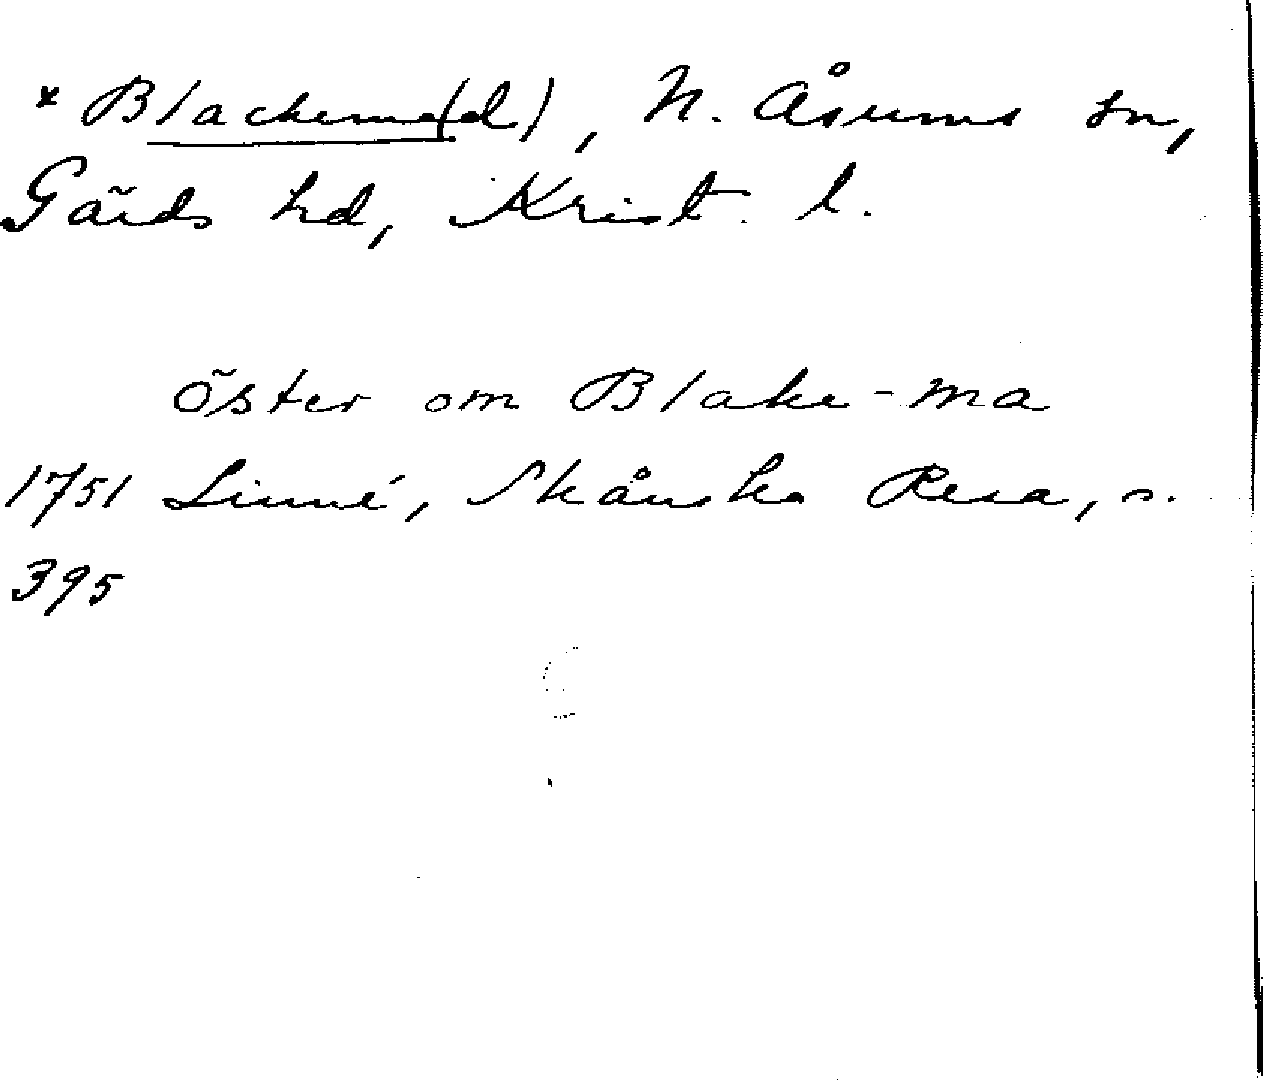 * Blackema(d), N. Åsums sn,
Gärds hd, Krist. l.
öster om Blake-ma
1751 Linné, Skånska Resa, s.
395